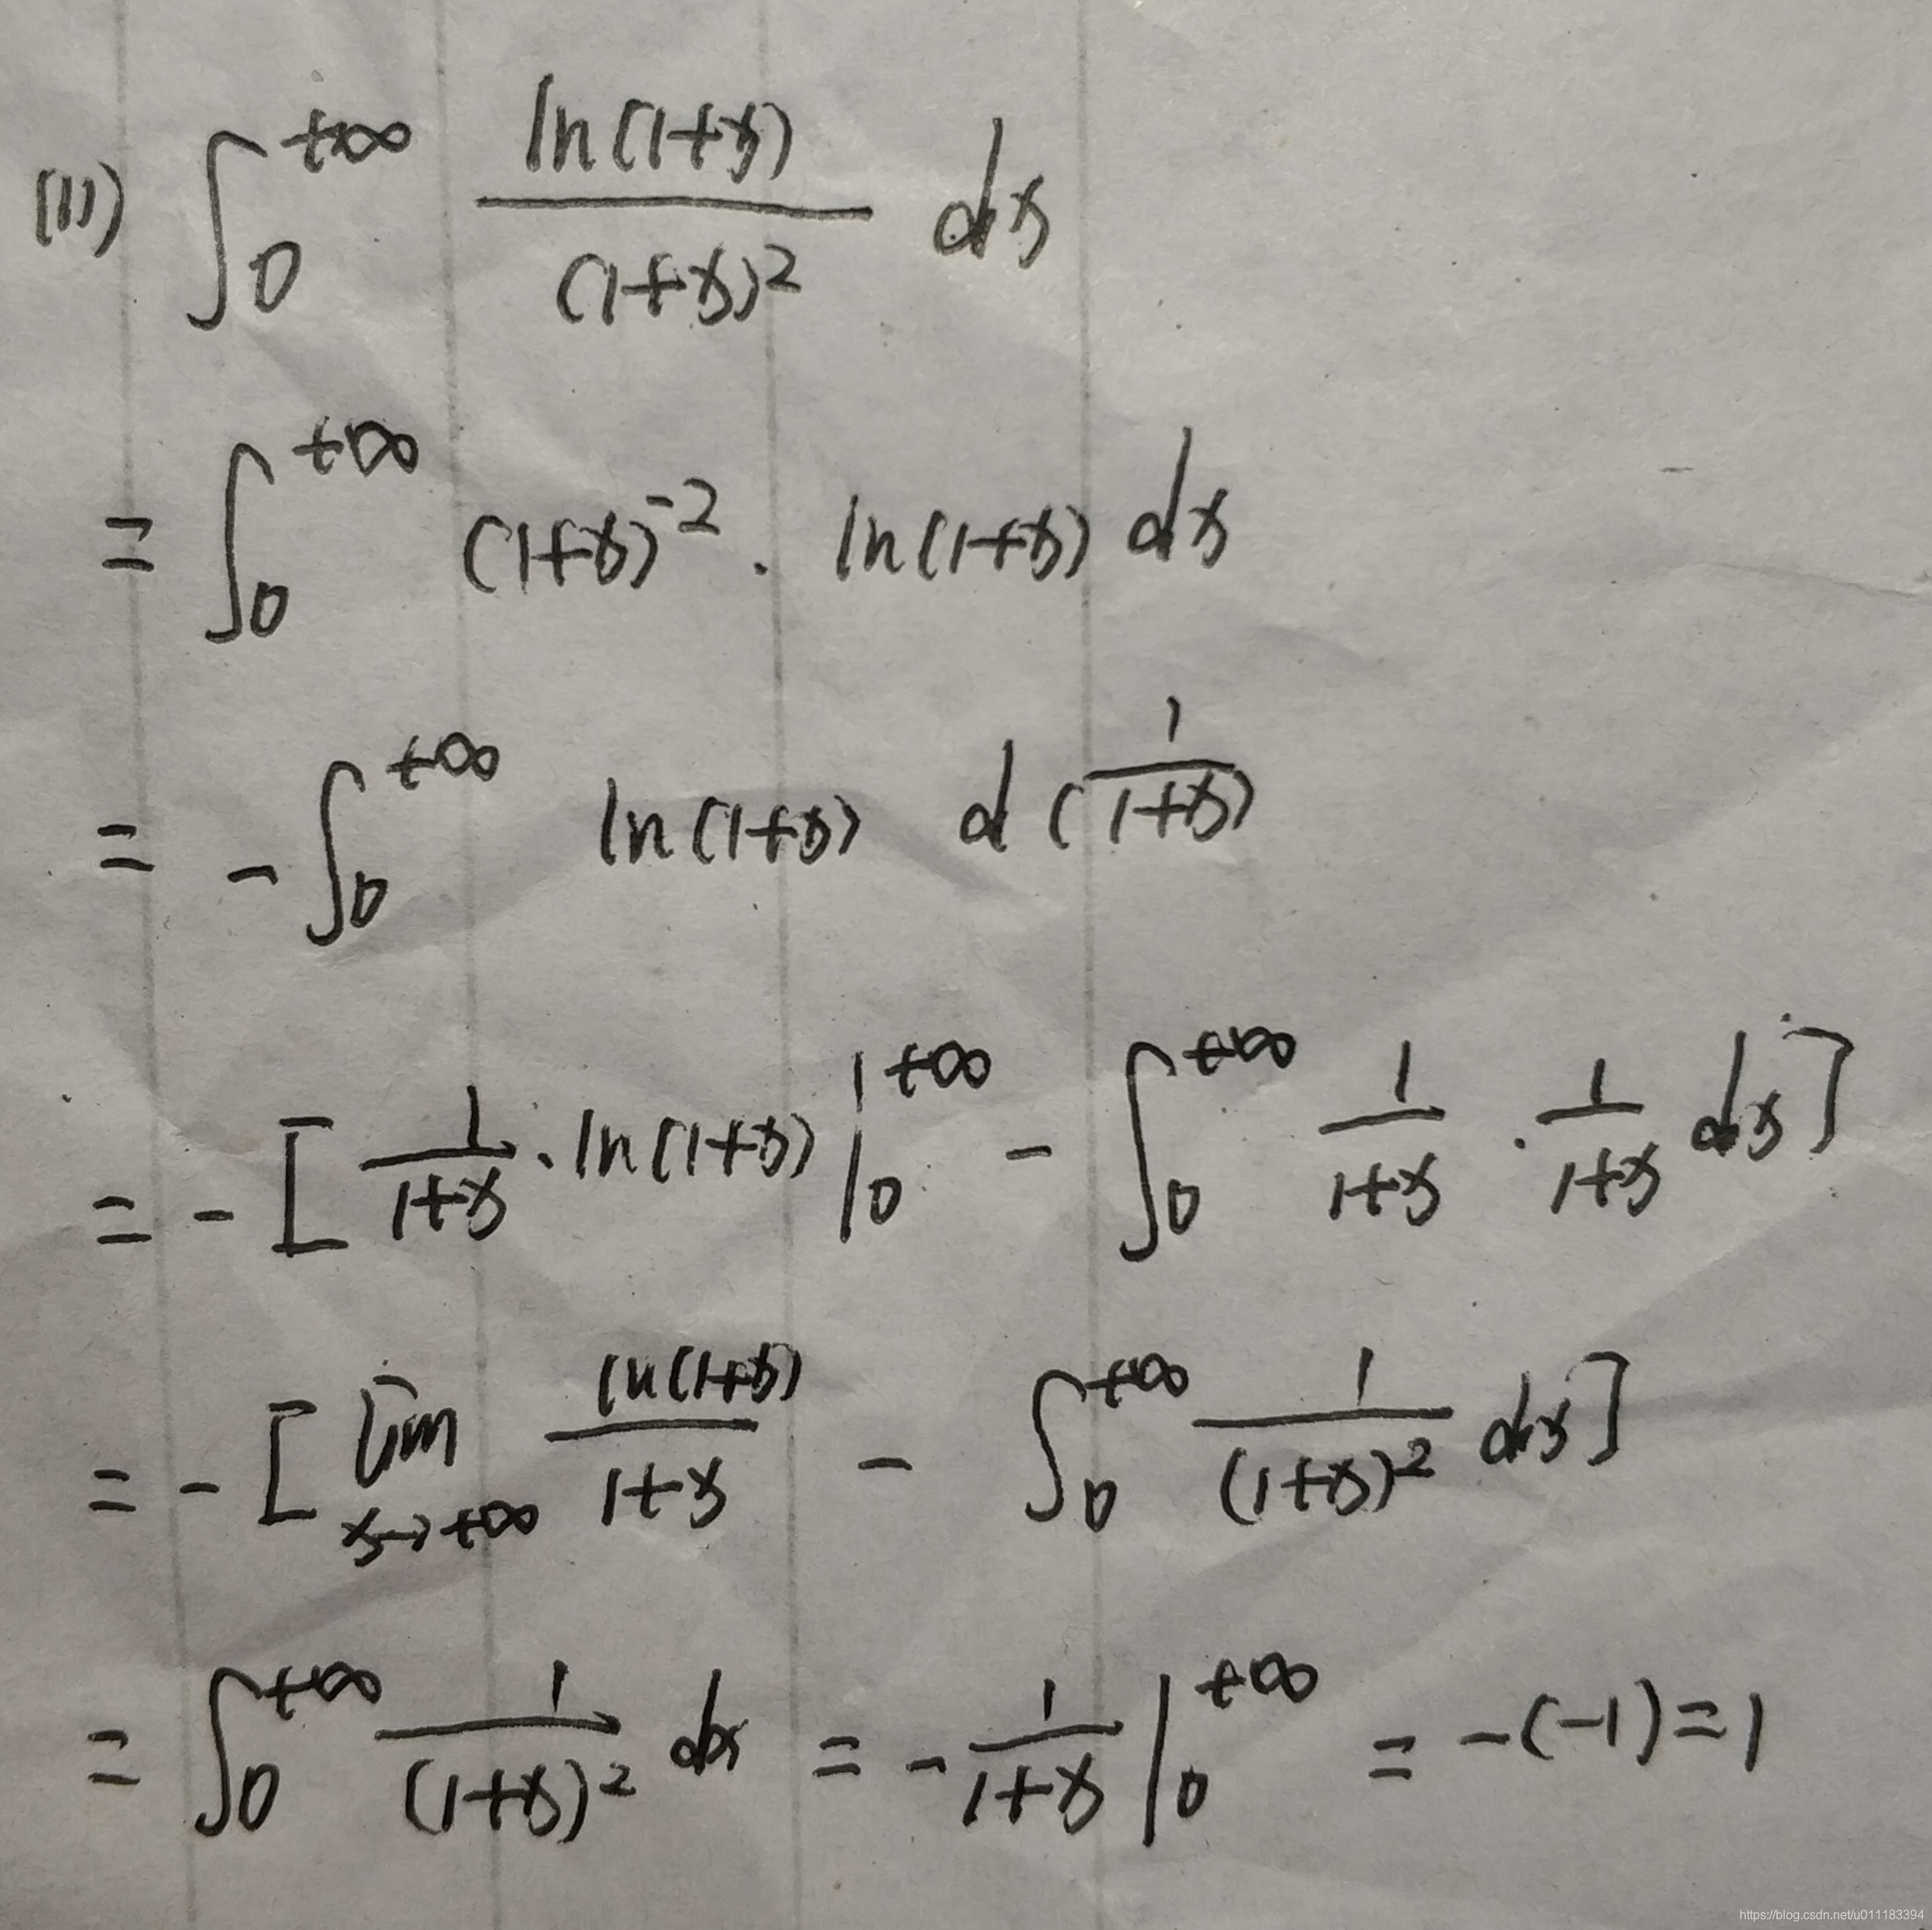 (11) ∫₀^{+∞} \frac{ln(1+x)}{(1+x)²} dx
= ∫₀^{+∞} (1+x)^{-2} · ln(1+x) dx
= - ∫₀^{+∞} ln(1+x) d(\frac{1}{1+x})
= - [ \frac{1}{1+x} · ln(1+x) |₀^{+∞} - ∫₀^{+∞} \frac{1}{1+x} · \frac{1}{1+x} dx ]
= - [ lim_{x→+∞} \frac{ln(1+x)}{1+x} - ∫₀^{+∞} \frac{1}{(1+x)²} dx ]
= ∫₀^{+∞} \frac{1}{(1+x)²} dx = - \frac{1}{1+x} |₀^{+∞} = -(-1) = 1
https://blog.csdn.net/u011183394